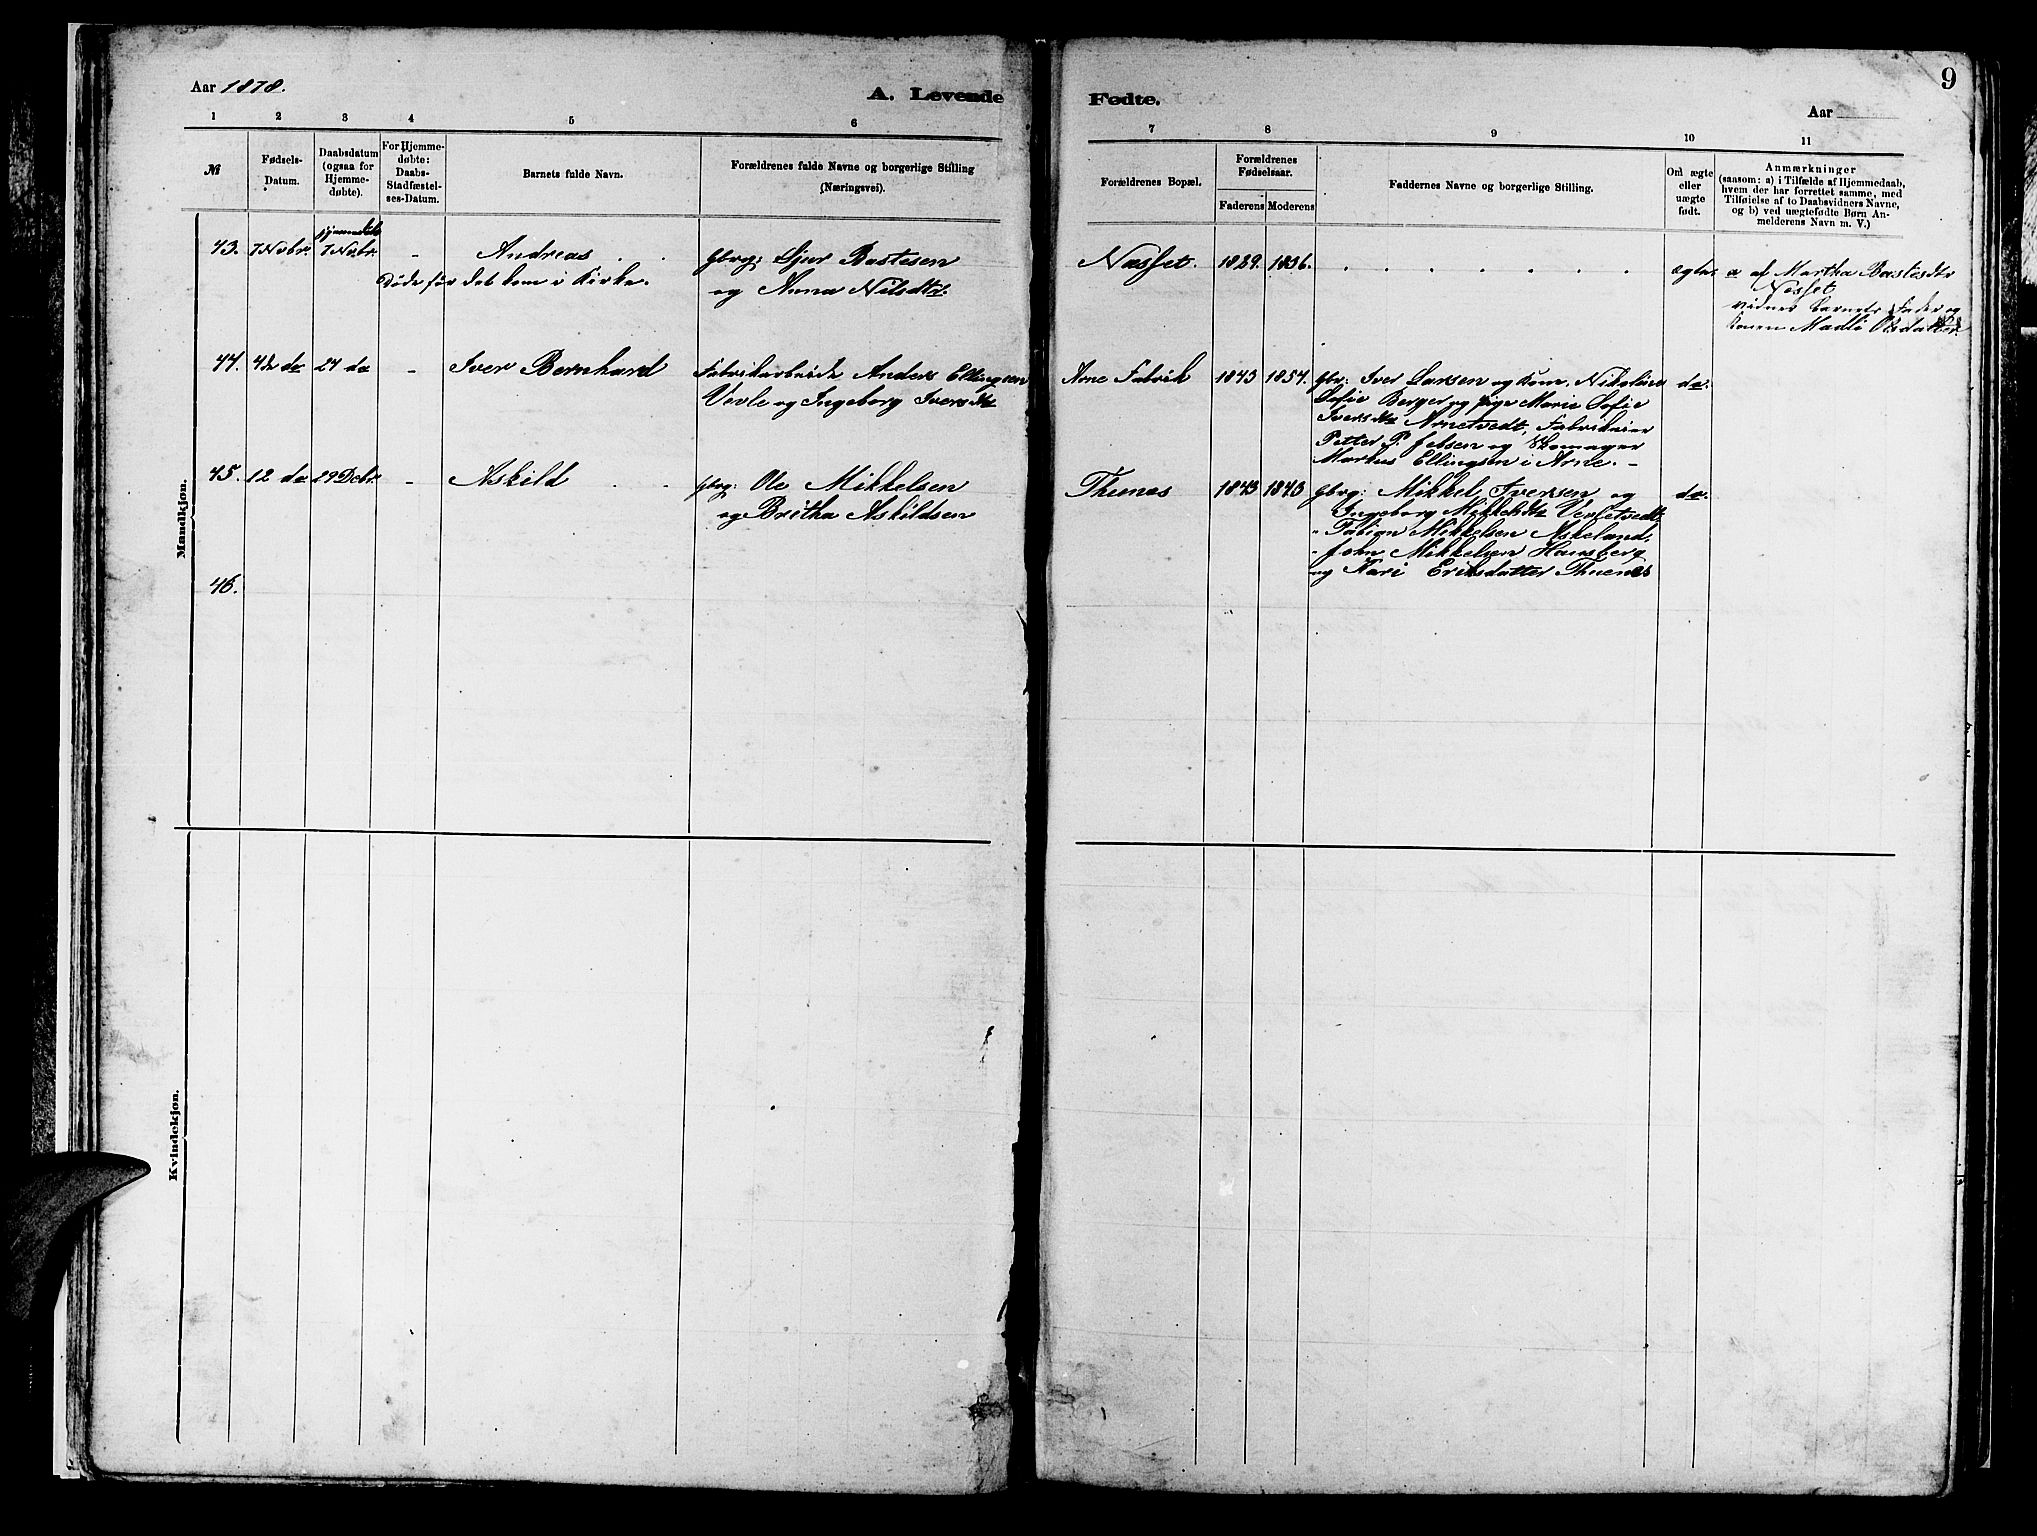 9
Aar 1878.
A. Levende Fødte.
Aar
1 2 3 4 5 6 7 8 9 10 11
№
Fødsels-
Datum.
Daabsdatum
(ogsaa for
Hjemme-
døbte).
For Hjemme-
døbte:
Daabs-
Stadfæstel-
ses-Datum.
Barnets fulde Navn.
Forældrenes fulde Navne og borgerlige Stilling
(Næringsvei).
Forældrenes Bopæl.
Forældrenes
Fødselsaar.
Faderens Moderens
Faddernes Navne og borgerlige Stilling.
Om ægte
eller
uægte
født.
Anmærkninger
(saasom: a) i Tilfælde af Hjemmedaab,
hvem der har forrettet samme, med
Tilføielse af to Daabsvidners Navne,
og b) ved uægtefødte Børn An-
melderens Navn m. V.)
Mandkjøn.
43. 7 Novbr. hjemmedøbt 7 Novbr. - Andreas
Døde før det kom i Kirke.
Gbrg: Sjur Bastesen
og Anna Nilsdtr.
Næsset. 1829. 1836.
ægte.
a af Martha Bastesdtr
Næsset
vidner barnets Fader og
Konen Madli Olsdatter
44. 12 do 24 do - Iver Bernhard
Fabrikarbeider Anders Ellingsen
Vevle og Ingeborg Iversdtr
Arne Fabrik 1843 1854.
Gbr: Iver Larsen og Kone, Nikoline
Sofie Berger og pige Marie Sofie
Iversdtr Arnetvedt, Fabrikeier
Petter P. Jebsen og Skomager
Markus Ellingsen i Arne. -
do.
45. 12 do 29 Debr. - Askild
Gbrg: Ole Mikkelsen
og Britha Askildsen
Thunes 1843 1843
Gbrg: Mikkel Iversen og
Ingeborg Mikkelsdtr
" Fabian Mikkelsen Askeland,
" John Mikkelsen Hausberg
og Kari Eriksdatter Thunes
do.
46.
Kvindekjøn.